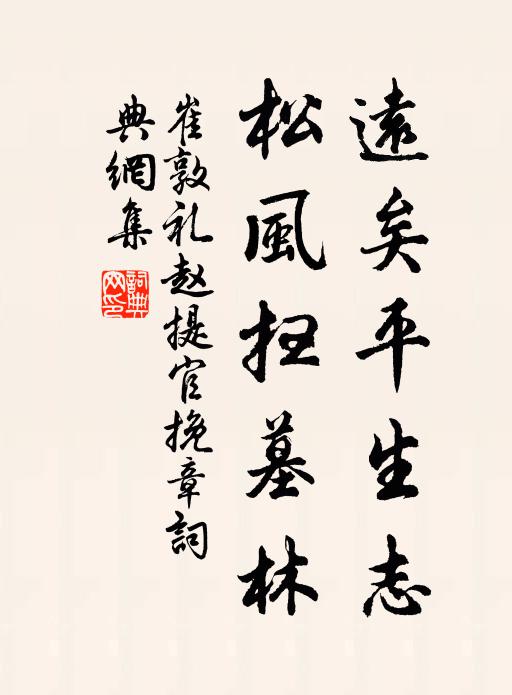 遠矣平生志
松風扫墓林
崔敦礼赵提官挽章詞
典網集
詞典網印